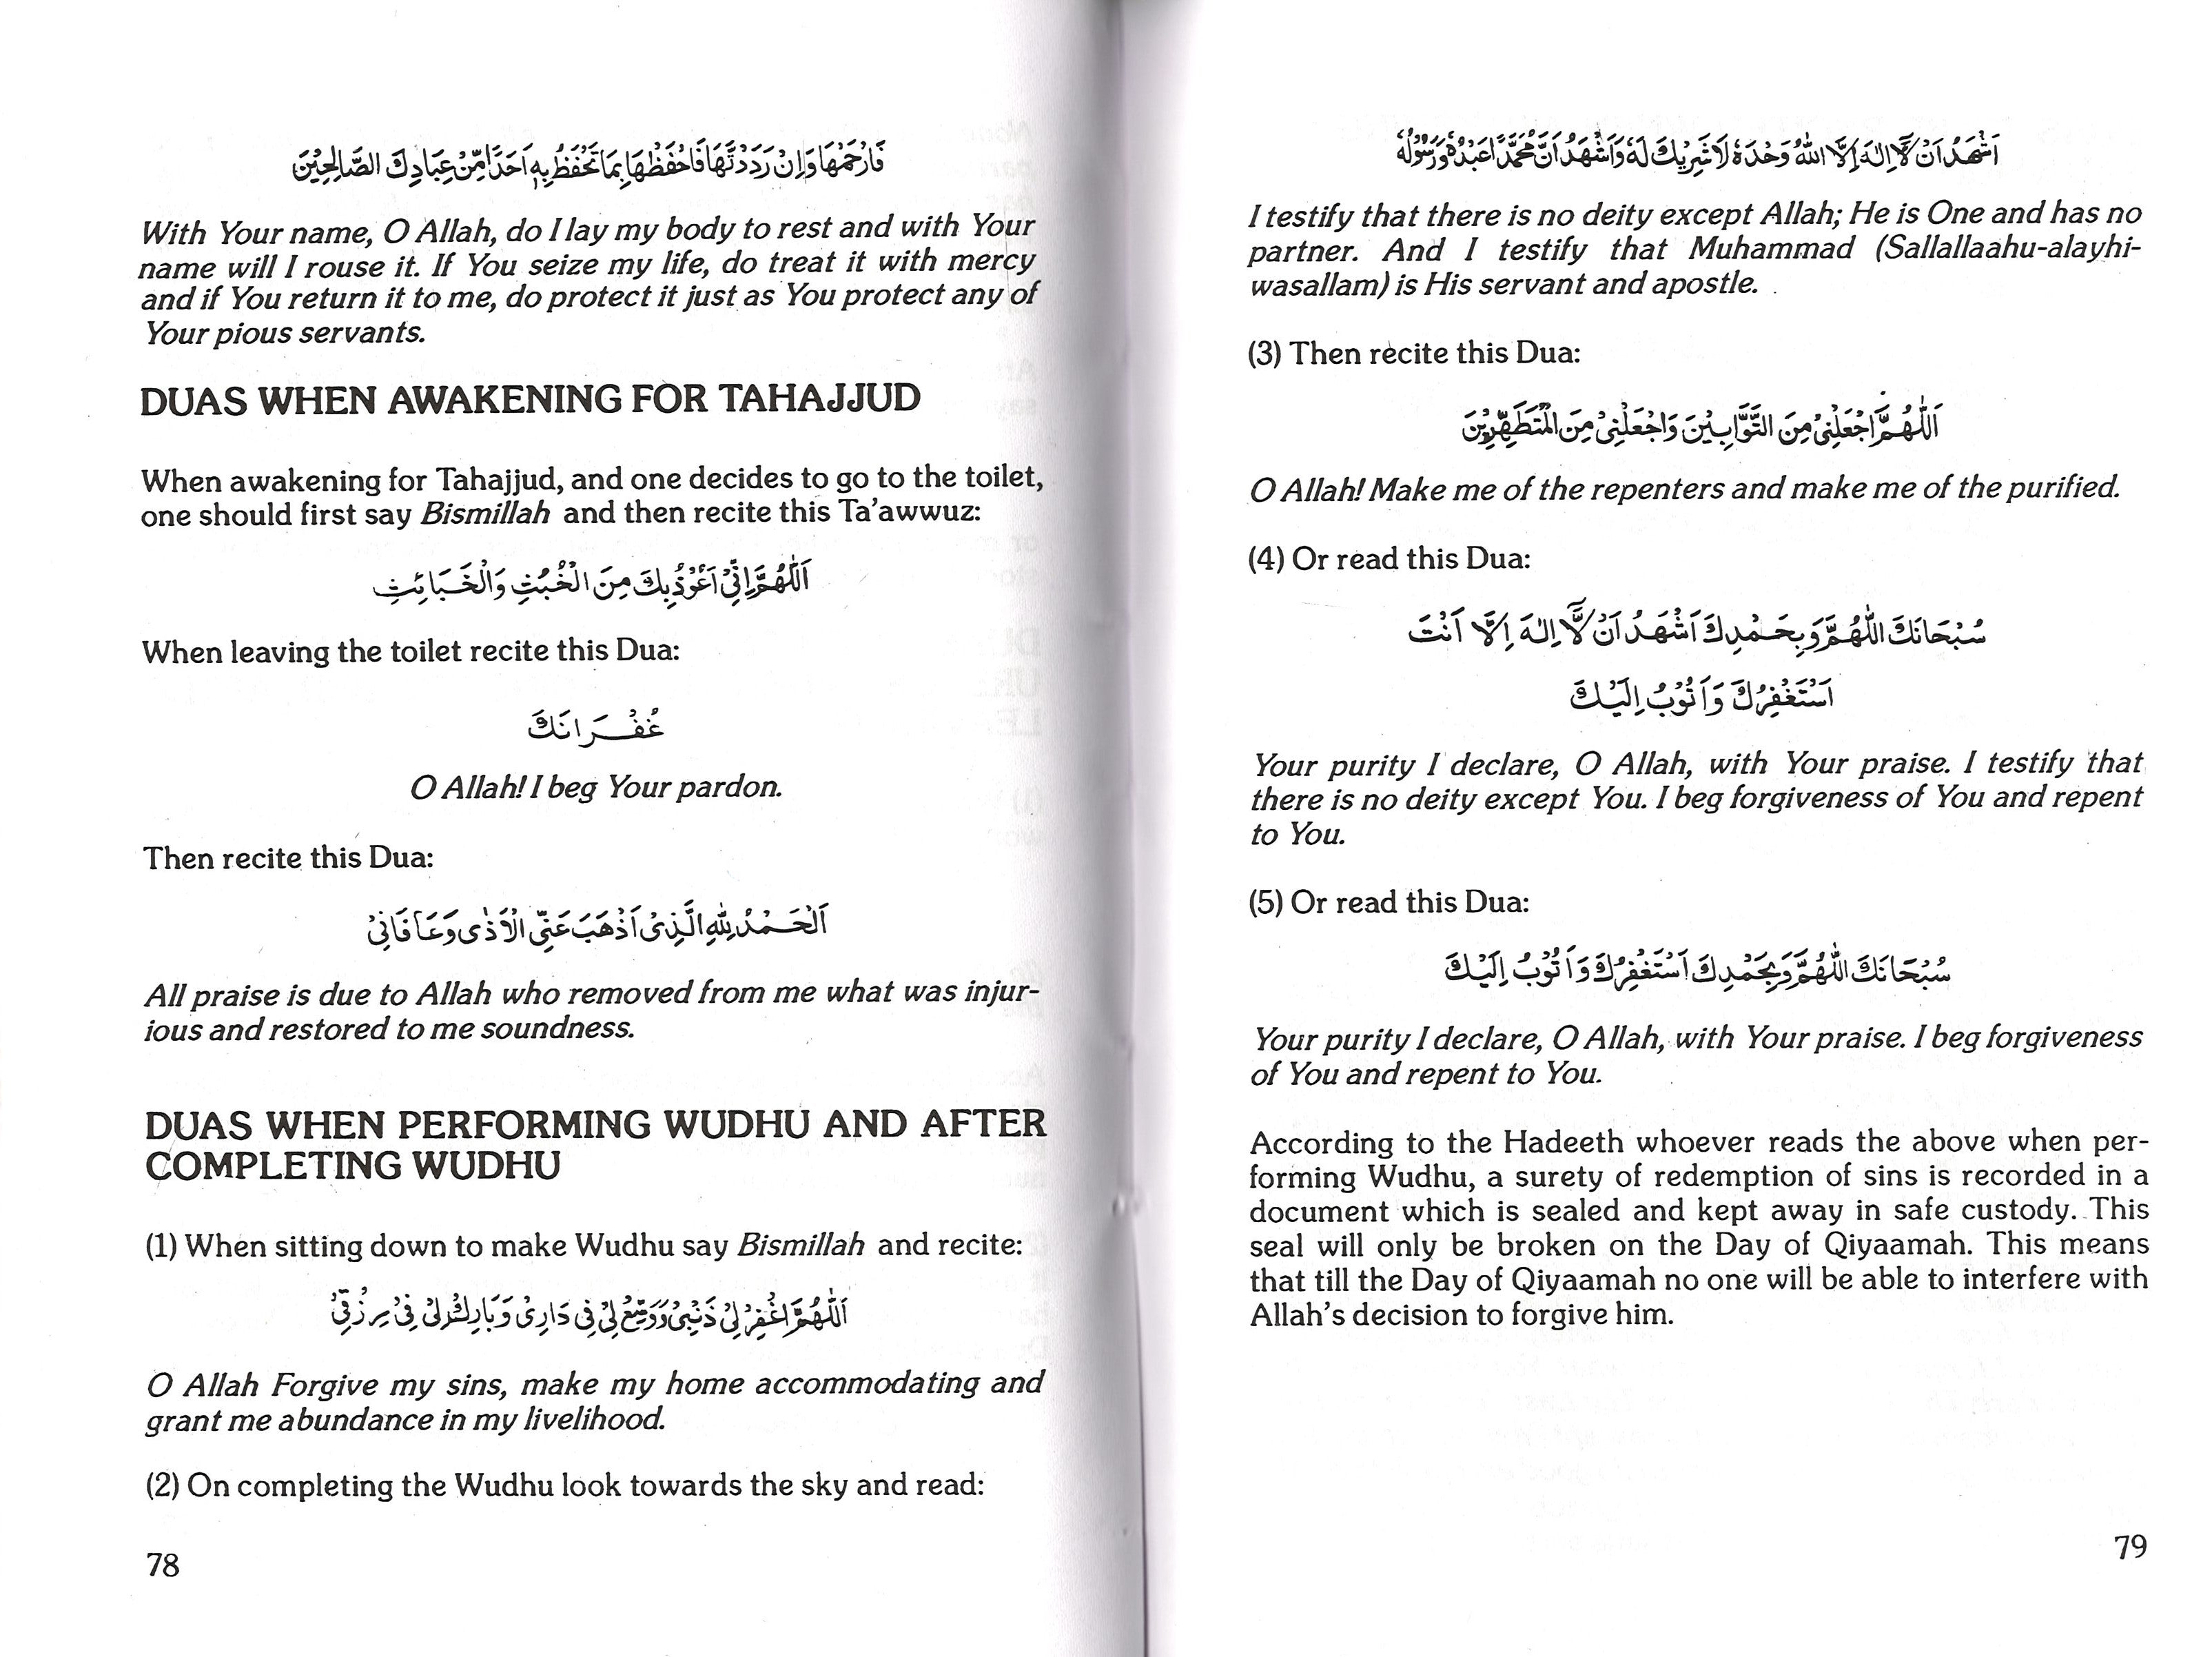 فَارْحَمْهَا وَاِنْ رَدَدْتَّهَا فَاحْفَظْهَا بِمَا تَحْفَظُ بِهٖ اَحَدًا مِّنْ عِبَادِكَ الصَّالِحِيْنَ
With Your name, O Allah, do I lay my body to rest and with Your
name will I rouse it. If You seize my life, do treat it with mercy
and if You return it to me, do protect it just as You protect any of
Your pious servants.
DUAS WHEN AWAKENING FOR TAHAJJUD
When awakening for Tahajjud, and one decides to go to the toilet,
one should first say Bismillah and then recite this Ta'awwuz:
اَللّٰهُمَّ اِنِّىْ اَعُوْذُ بِكَ مِنَ الْخُبُثِ وَالْخَبَائِثِ
When leaving the toilet recite this Dua:
غُفْرَانَكَ
O Allah! I beg Your pardon.
Then recite this Dua:
اَلْحَمْدُ لِلّٰهِ الَّذِىْ اَذْهَبَ عَنِّى الْاَذٰى وَعَافَانِىْ
All praise is due to Allah who removed from me what was injur-
ious and restored to me soundness.
DUAS WHEN PERFORMING WUDHU AND AFTER
COMPLETING WUDHU
(1) When sitting down to make Wudhu say Bismillah and recite:
اَللّٰهُمَّ اغْفِرْ لِىْ ذَنْبِىْ وَوَسِّعْ لِىْ فِىْ دَارِىْ وَبَارِكْ لِىْ فِىْ رِزْقِىْ
O Allah Forgive my sins, make my home accommodating and
grant me abundance in my livelihood.
(2) On completing the Wudhu look towards the sky and read:
78
اَشْهَدُ اَنْ لَّا اِلٰهَ اِلَّا اللّٰهُ وَحْدَهٗ لَا شَرِيْكَ لَهٗ وَاَشْهَدُ اَنَّ مُحَمَّدًا عَبْدُهٗ وَرَسُوْلُهٗ
I testify that there is no deity except Allah; He is One and has no
partner. And I testify that Muhammad (Sallallaahu-alayhi-
wasallam) is His servant and apostle.
(3) Then recite this Dua:
اَللّٰهُمَّ اجْعَلْنِىْ مِنَ التَّوَّابِيْنَ وَاجْعَلْنِىْ مِنَ الْمُتَطَهِّرِيْنَ
O Allah! Make me of the repenters and make me of the purified.
(4) Or read this Dua:
سُبْحَانَكَ اللّٰهُمَّ وَبِحَمْدِكَ اَشْهَدُ اَنْ لَّا اِلٰهَ اِلَّا اَنْتَ
اَسْتَغْفِرُكَ وَاَتُوْبُ اِلَيْكَ
Your purity I declare, O Allah, with Your praise. I testify that
there is no deity except You. I beg forgiveness of You and repent
to You.
(5) Or read this Dua:
سُبْحَانَكَ اللّٰهُمَّ وَبِحَمْدِكَ اَسْتَغْفِرُكَ وَاَتُوْبُ اِلَيْكَ
Your purity I declare, O Allah, with Your praise. I beg forgiveness
of You and repent to You.
According to the Hadeeth whoever reads the above when per-
forming Wudhu, a surety of redemption of sins is recorded in a
document which is sealed and kept away in safe custody. This
seal will only be broken on the Day of Qiyaamah. This means
that till the Day of Qiyaamah no one will be able to interfere with
Allah's decision to forgive him.
79